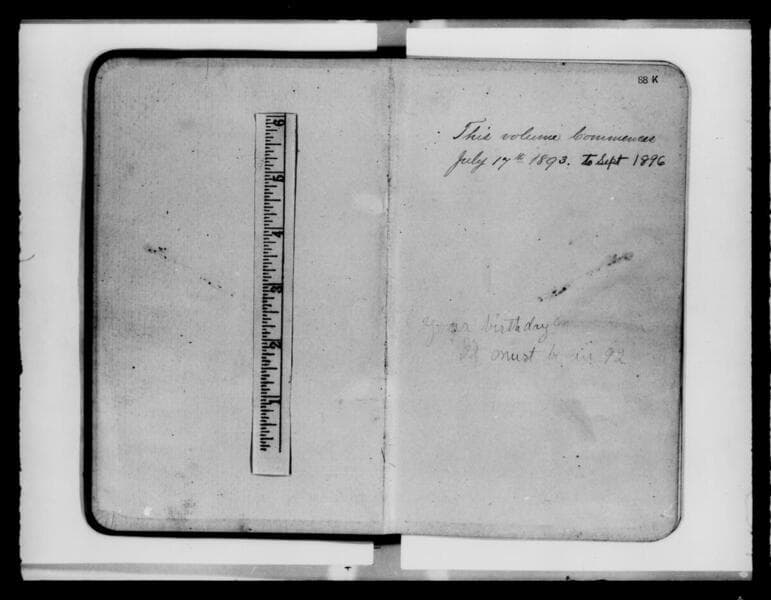 88 K
This volume Commences
July 17th 1893. To Sept 1896
birthday
must be in 92
6
5
4
3
2
1